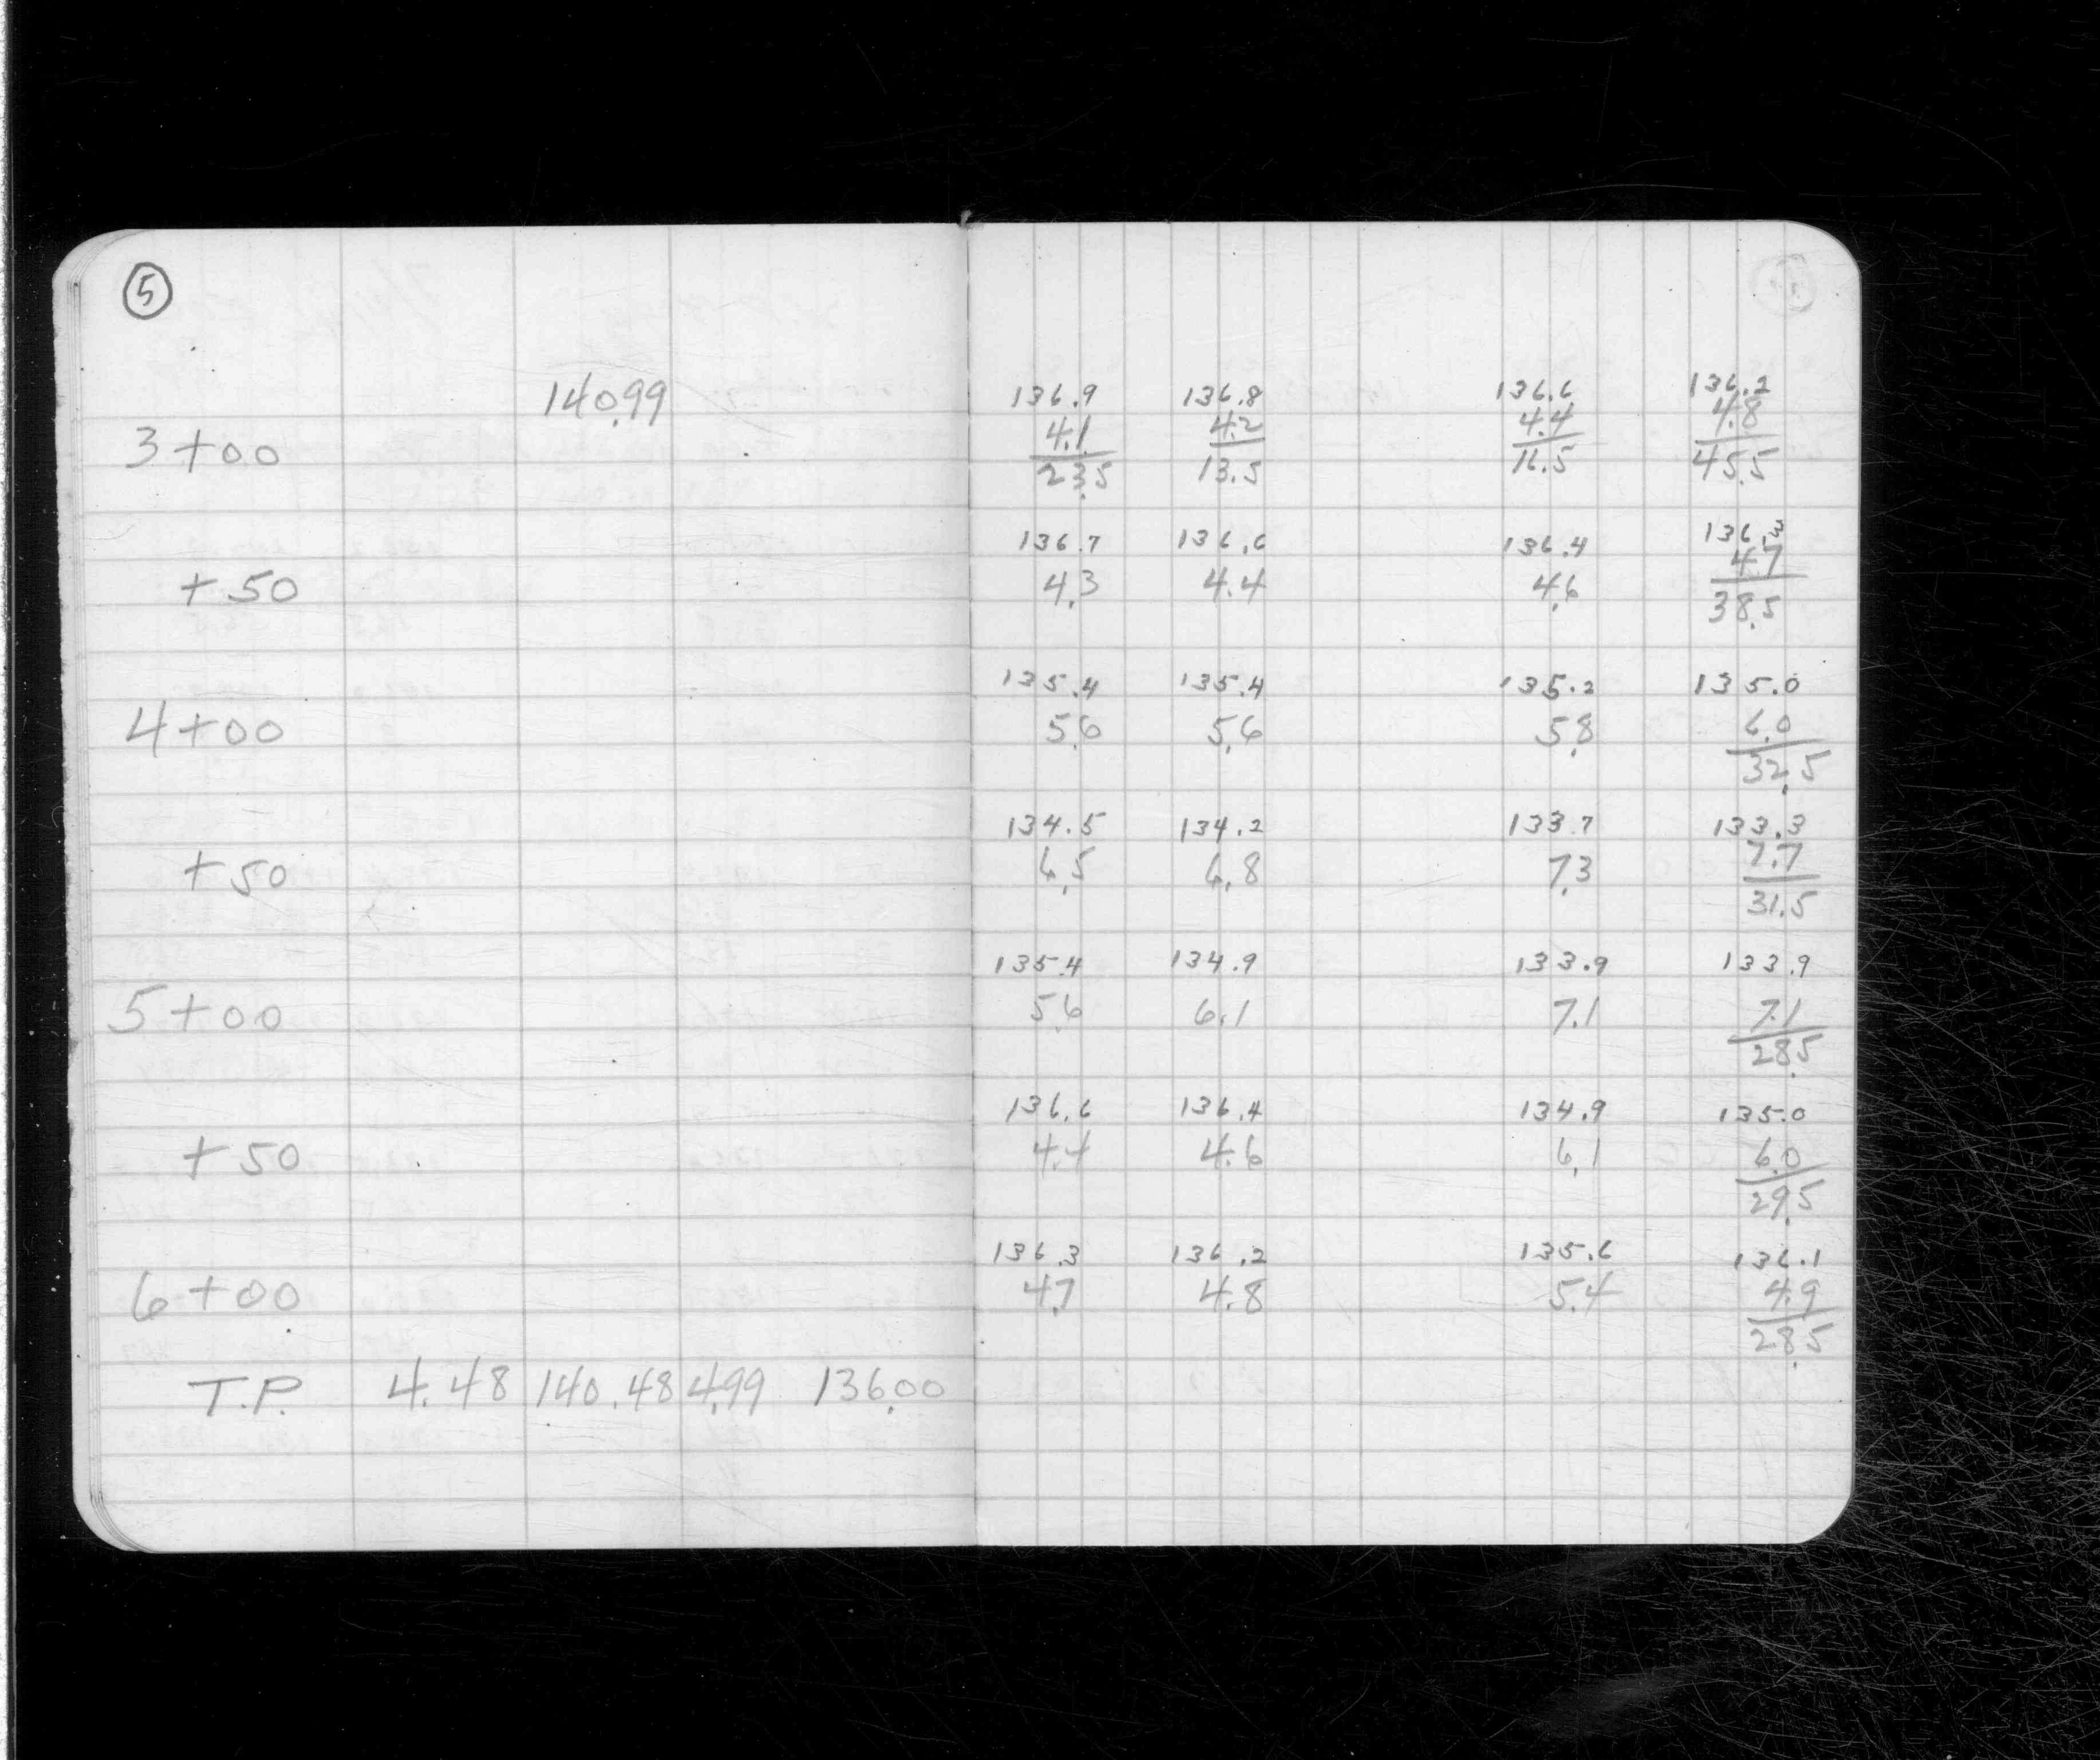 5
140.99
136.9 136.8 136.6 136.2
4.1 4.2 4.4 4.8
3+00
23.5 13.5 16.5 45.5
136.7 136.6 136.4 136.3
+50 4.3 4.4 4.6 4.7
38.5
135.4 135.4 135.2 135.0
4+00 5.6 5.6 5.8 6.0
32.5
134.5 134.2 133.7 133.3
+50 6.5 6.8 7.3 7.7
31.5
135.4 134.9 133.9 133.9
5+00 5.6 6.1 7.1 7.1
28.5
136.6 136.4 134.9 135.0
+50 4.4 4.6 6.1 6.0
29.5
136.3 136.2 135.6 136.1
6+00 4.7 4.8 5.4 4.9
28.5
T.P. 4.48 140.48 4.99 136.00